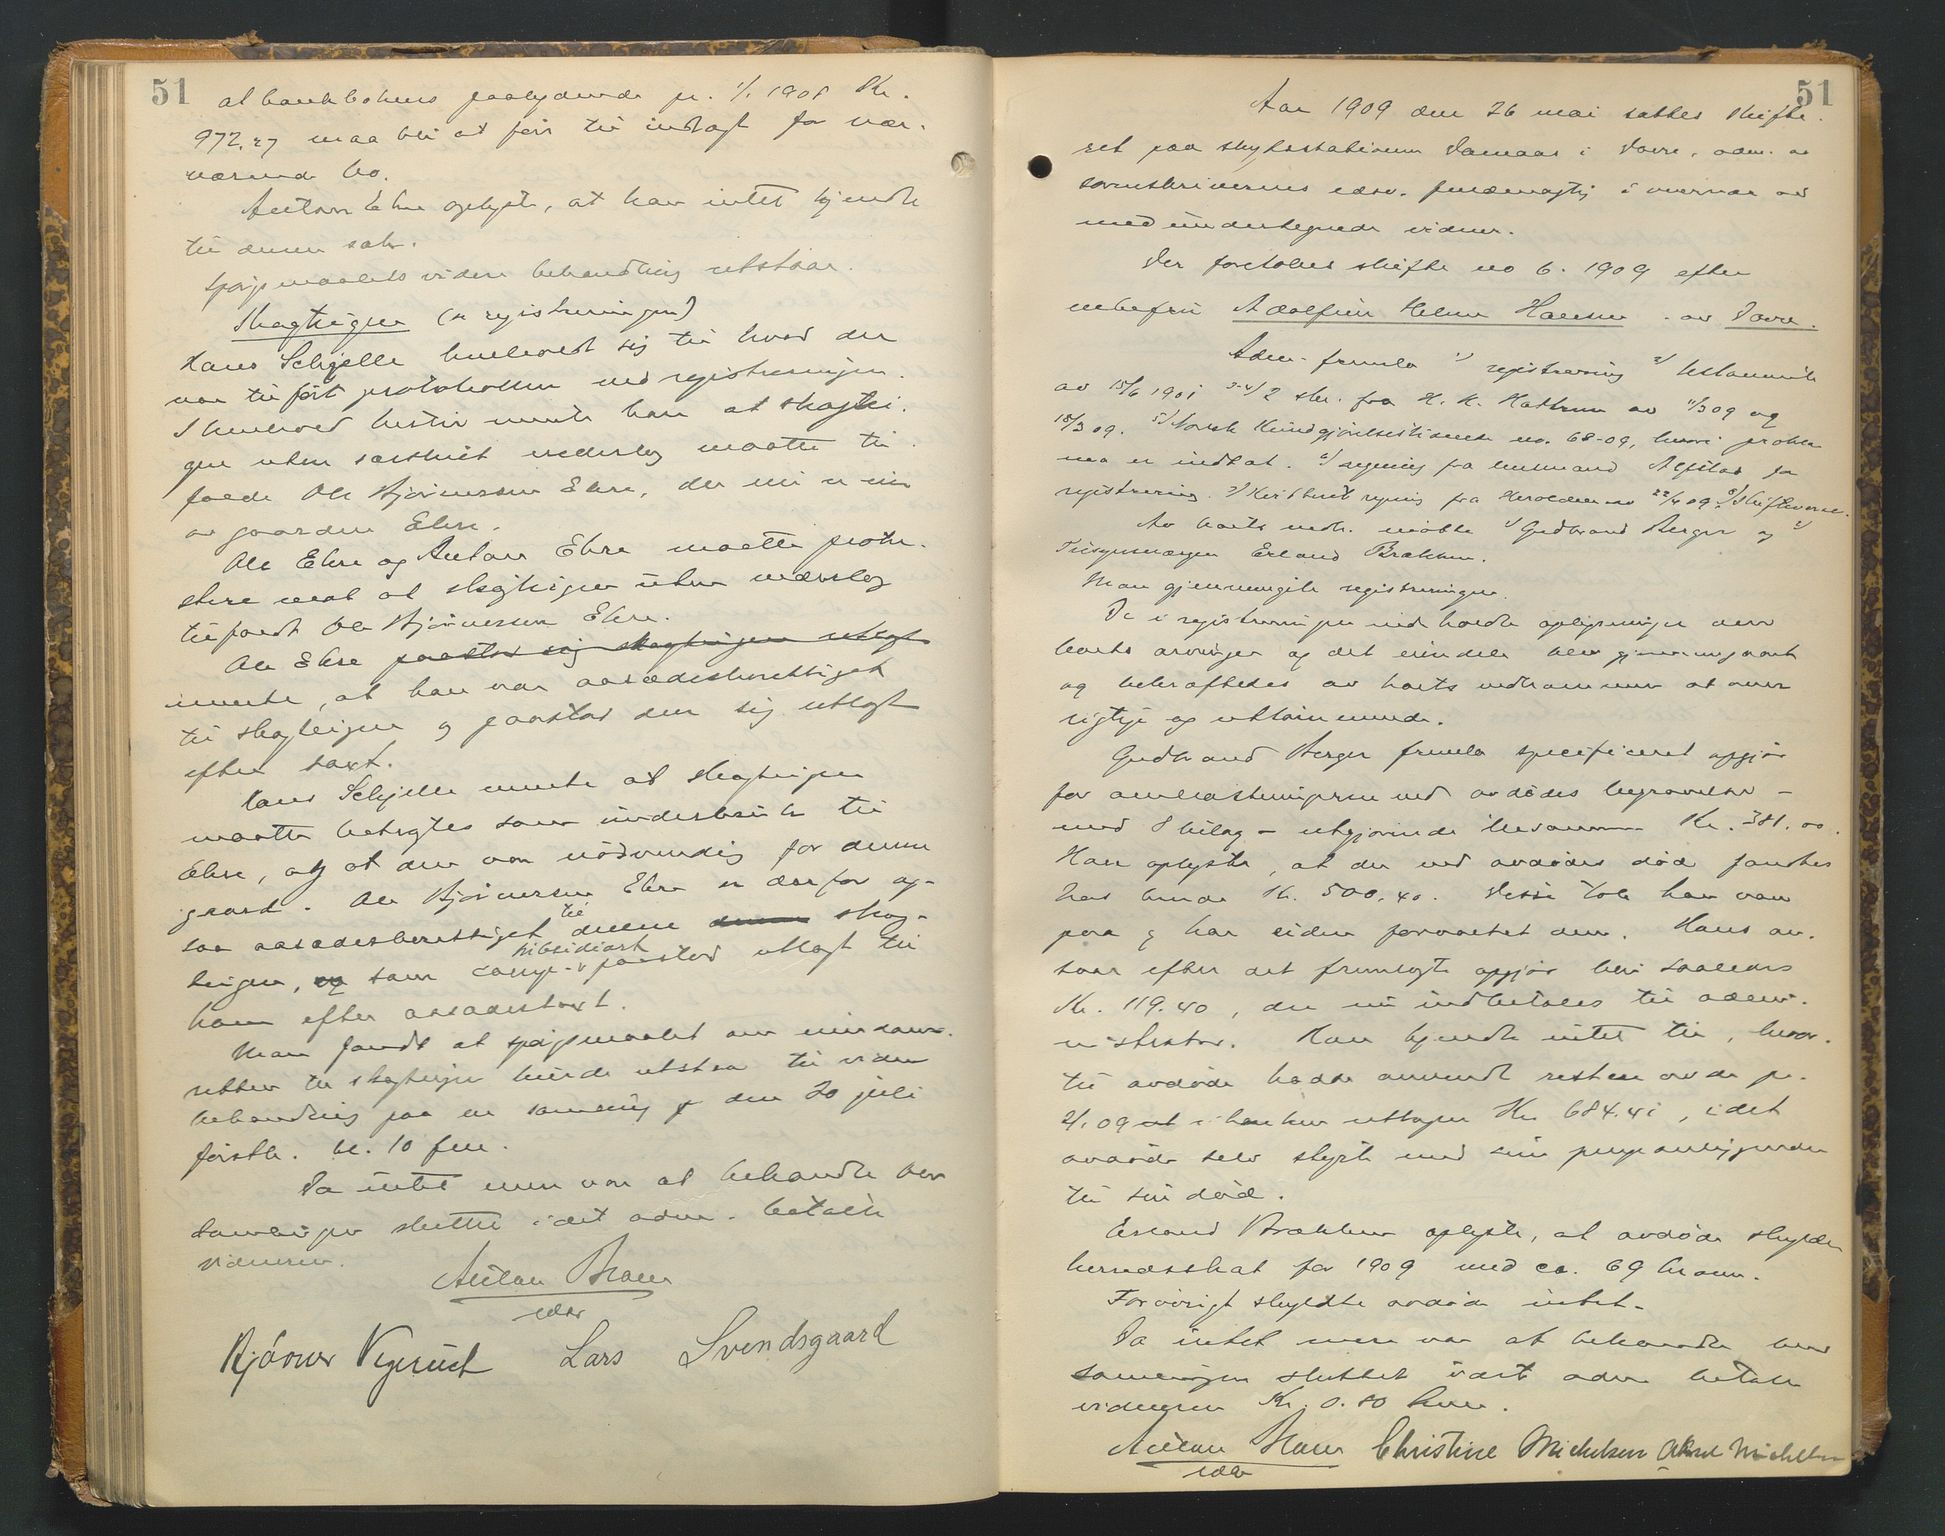 51
at bankbokens paalydende pr. 1/1 1908 Kr.
972.27 maa bli at före til indtægt for nær-
værende bo.
Anton Ekre oplyste, at han intet kjendte
til denne sak.
Spörsmaalets videre behandling utstaar.
Skogteigen (se registreringen)
Hans Schjelle henholdt sig til hvad der
var tilfört protokollen ved registreringen.
I henhold hertil mente han at skogtei-
gen uten særskilt vederlag maatte til-
falde Ole Björnersen Ekre, der nu er eier
av gaarden Ekre.
Ole Ekre og Anton Ekre maatte prote-
stere mot at skogteigen uten vederlag
tilfaldt Ole Björnersen Ekre.
Ole Ekre paastod sig skogteigen utlagt
mente, at han var aasædesberettiget
til skogteigen og paastod den sig utlagt
efter taxt.
Hans Schjelle mente at skogteigen
maatte betragtes som underbruk til
Ekre, og at den var nödvendig for denne
gaard. Ole Björnersen Ekre er derfor og-
saa aasædesberettiget til denne skog-
teigen, og som subsidiært paastod utlagt til
ham efter aasædestaxt.
Man fandt at spörsmaalet om eiendoms-
retten til skogteigen burde utstaa til videre
behandling paa en samling den 20 juli
förstk. kl. 10 fm.
Da intet mere var at behandle blev
samlingen sluttet idet adm. betalte
vidnerne.
Anton
edsv
Björner Lars Svendsgaard
51
Aar 1909 den 26 mai sattes skifte-
ret paa skydsstationen i Dovre, adm. av
sorenskriverens edsv. fuldmægtig i nærvær av
medundertegnede vidner.
Der foretokes skifte no 6. 1909 efter
ubefri Adolfine Helene Hansen av Dovre.
Adm. fremla 1) registrering 2) testamente
av 15/6 1901 3-4) 2 skr. fra H. K. av 11/3 09 og
18/3 09. 5) Norsk Kundgjörelsestidende no. 68-09, hvori proklama
er indtat. 6) regning fra lensmand for
registrering. 7) Kvittert regning fra 22/4 09. 8) Skifteverse.
Av boets vedk. mötte 1) Gudbrand Berger og 2)
Tilsynsværgen Erland Brækken.
Man gjennemgik registreringen.
De i registreringen indholdte oplysninger om
boets arvinger og det öindele blev gjennemgaat
og bekræftedes av boets vedkommende at være
rigtige og uttömmende.
Gudbrand Berger fremla specificeret opgjör
for omkostningerne ved avdödes begravelse -
med 8 bilag - utgjörende tilsammen Kr. 381.00.
Han oplyste, at der ved avdödes död fandtes
hos hende Kr. 500.40. Disse tok han vare
paa og har siden forvaltet dem. Hans an-
svar efter det fremlagte opgjör blir saaledes
Kr. 119.40, der nu indbetales til admi-
nistrator. Han kjendte intet til, hvor-
til avdöde hadde anvendt resten av de pr.
2/1 09 i banken uttagne Kr. 684.41, idet
avdöde selv styrte med sine pengeanliggender
til sin död.
Erland Brækken oplyste, at avdöde skyldte
herredsskat for 1909 med ca. 69 kroner.
Forövrigt skyldte avdöde intet.
Da intet mere var at behandle blev
samlingen sluttet idet adm. betalte
vidnerne Kr. 0.80 hver.
Anton
edsv
Christine Michelsen